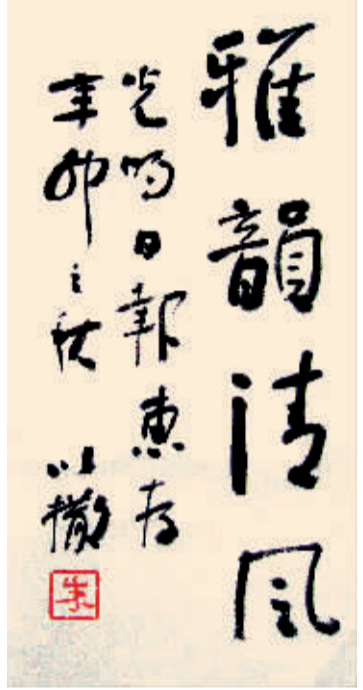 雅韻清風
光明日報惠存
辛卯之秋
以撒
朱